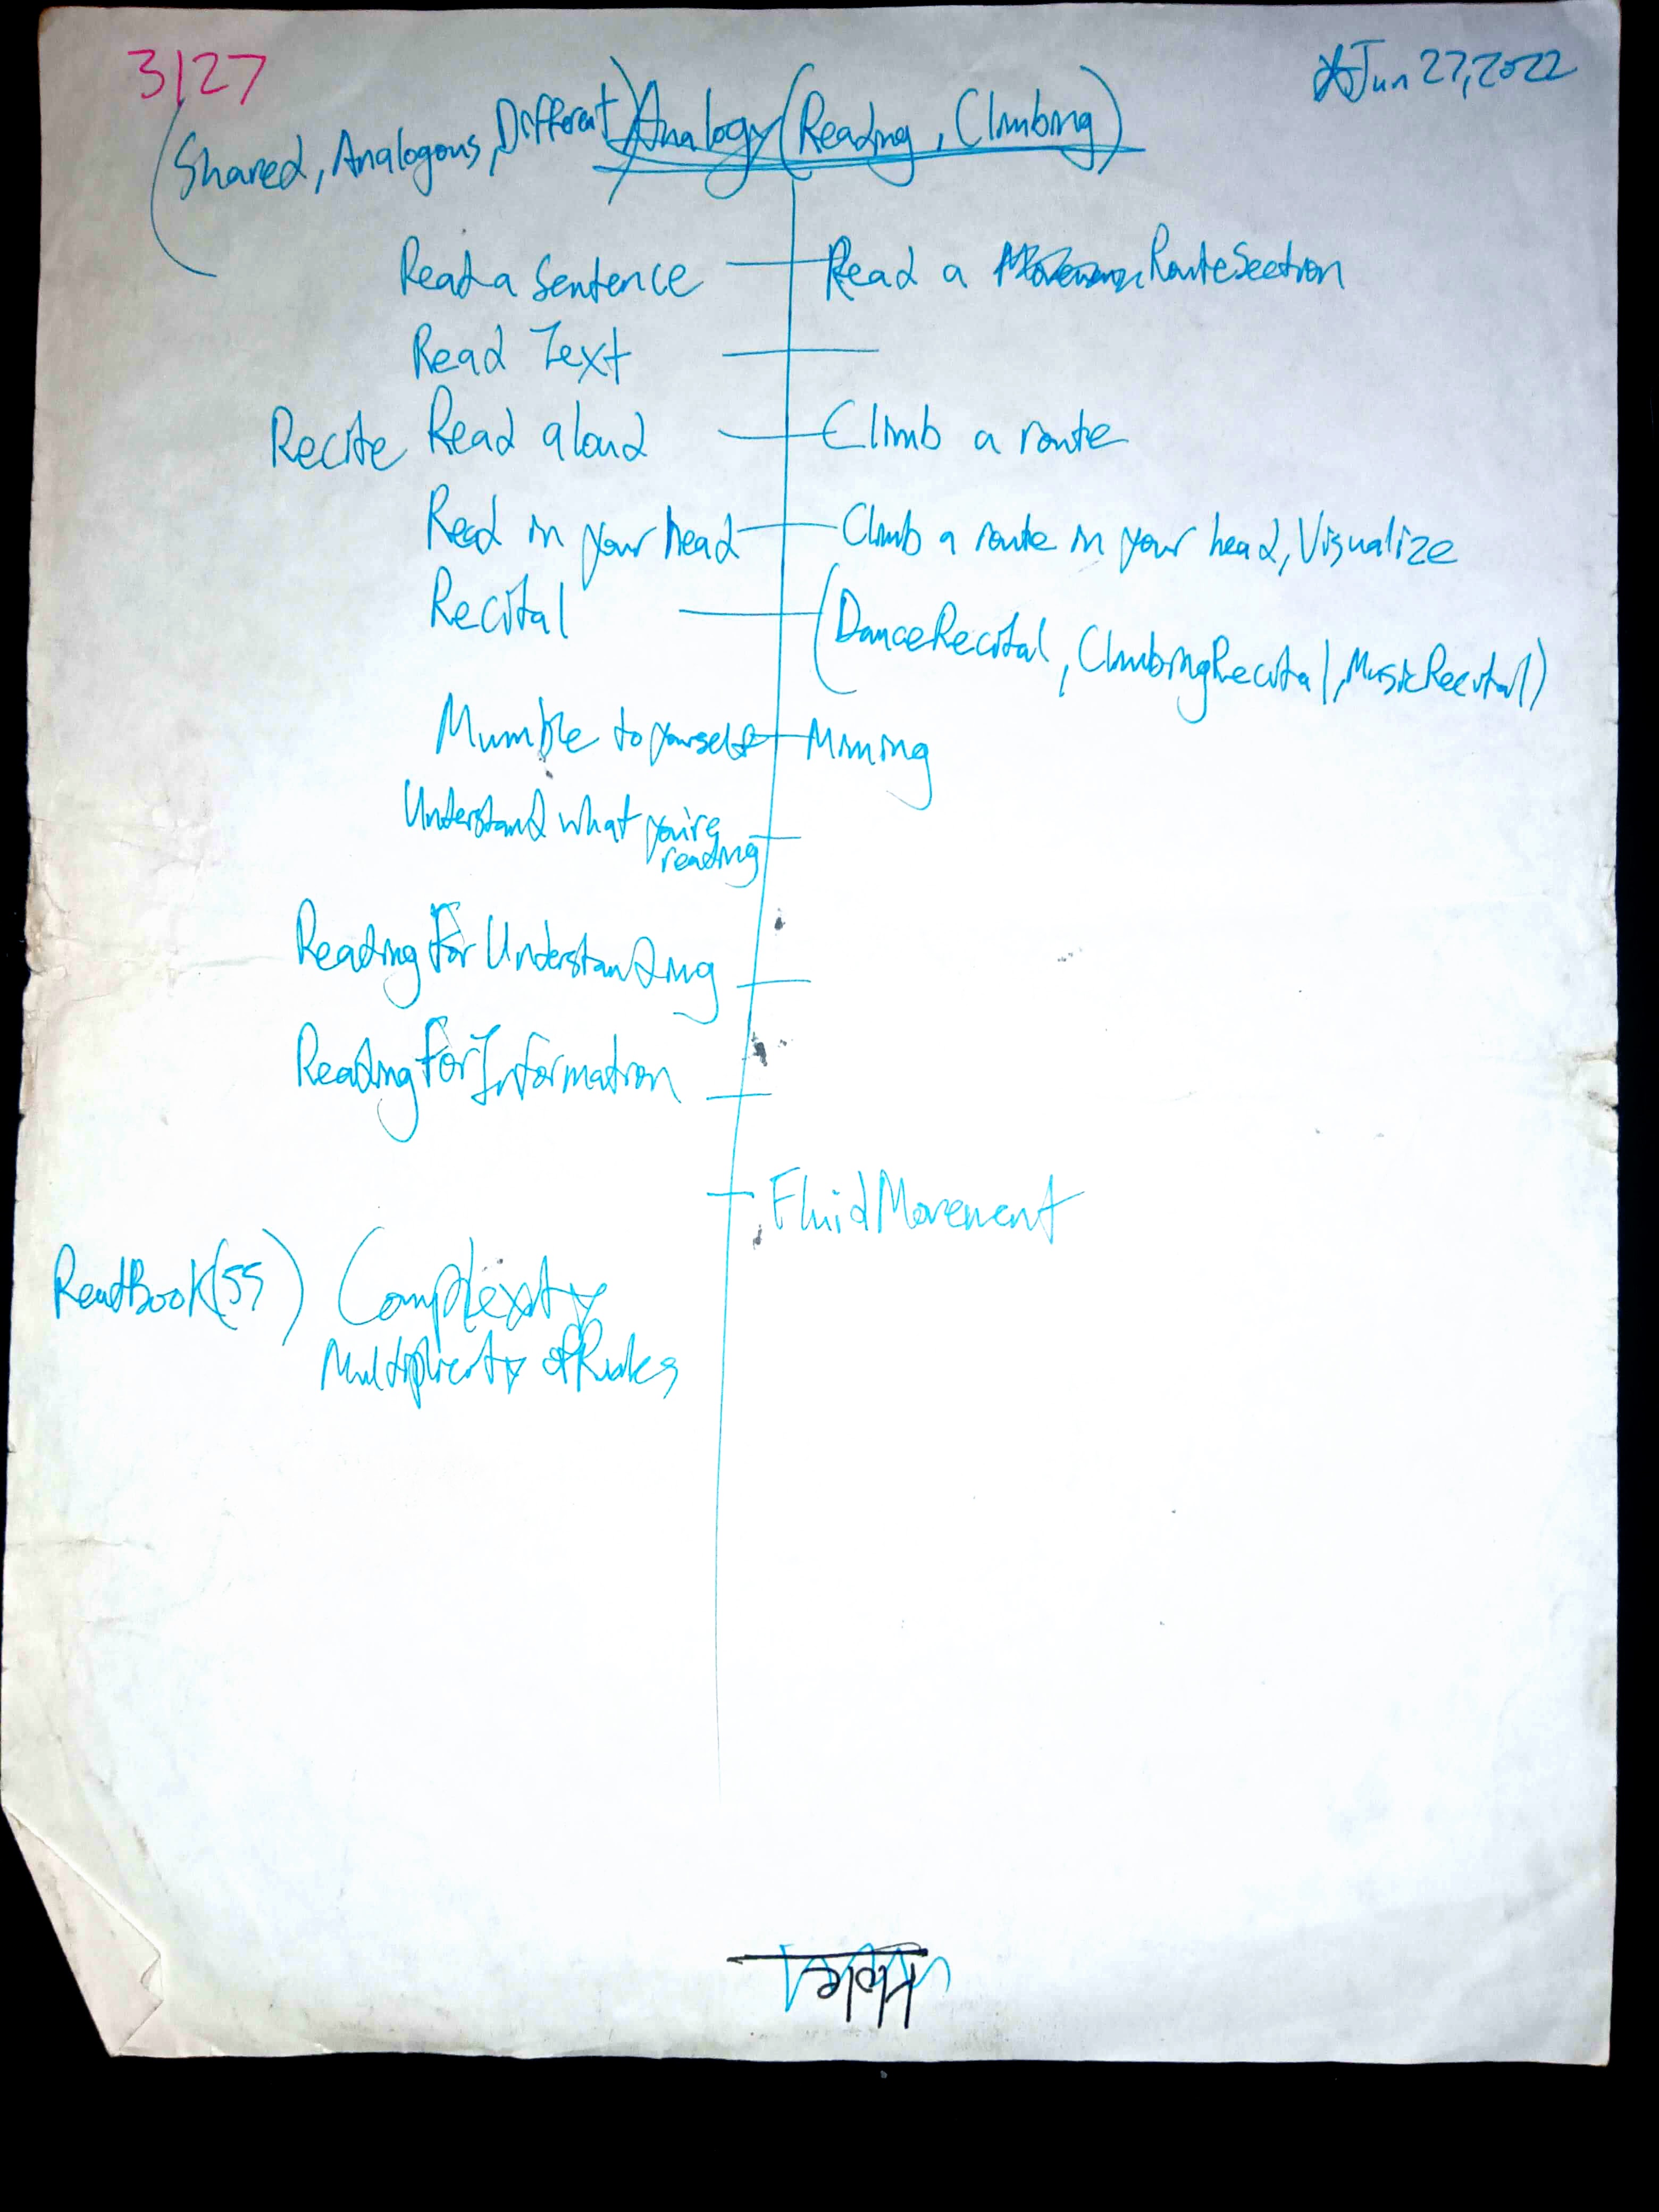 3/27
Jun 27, 2022
(Shared, Analogous, Different) Analogy (Reading, Climbing)
Read a Sentence Read a RouteSection
Read Text
Recite Read aloud Climb a route
Read in your head Climb a route in your head, Visualize
Recital (DanceRecital, ClimbingRecital, MusicRecital)
Mumble to yourself Miming
Understand what you're
reading
ReadingForUnderstanding
ReadingForInformation
FluidMovement
ReadBook(55) (Complexity
Multiplicity of Rules
Hole